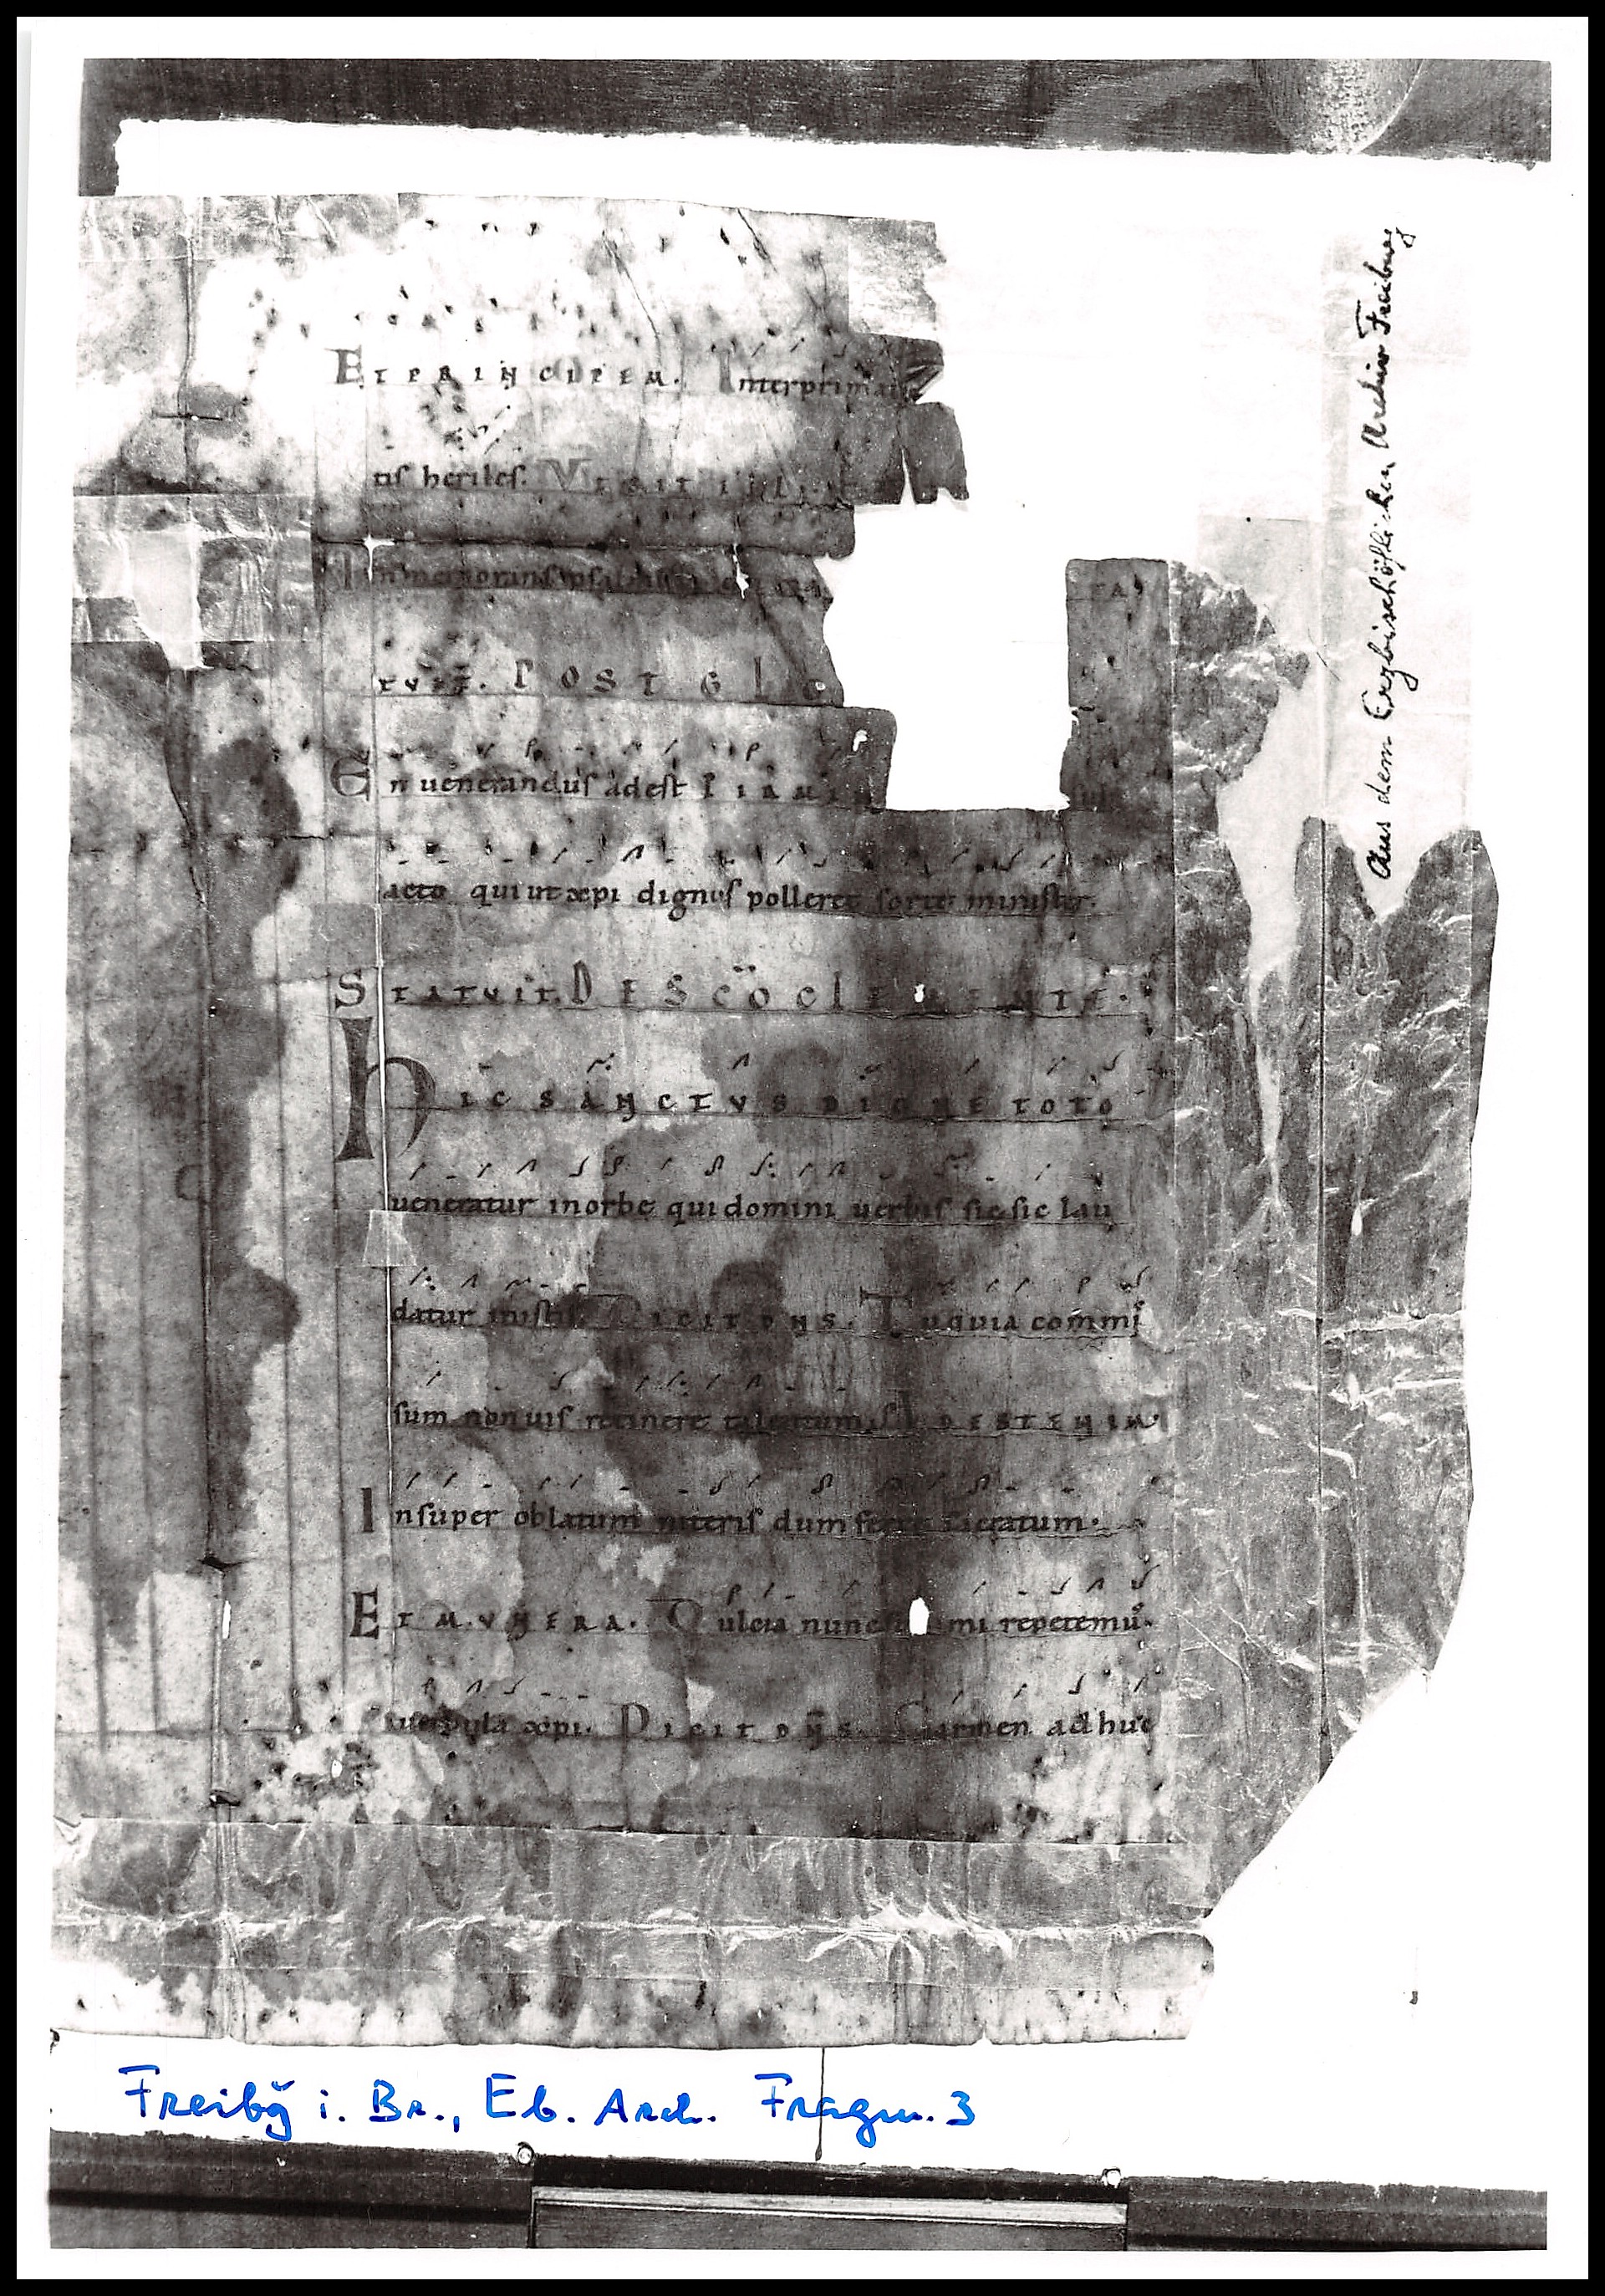 ET PRINCIPEM. Interprima
tis heriles. VTSIT ILLI.
TA
TVIT. POST GLO
En uenerandus adest PIAMI
acto qui ut coepi dignus polleret sorte minister.
STATVIT. DE SCO CLEMENTE.
HIC SANCTVS DIGNE TOTO
ueneratur in orbe qui domini uerbis sic sic lau
datur iustis DICIT DNS. TU QUIA commi
sum non uis retinere talentum. ADESTENIM
Insuper oblatum niteris dum ferre
ET MUNERA. Dulcia nunc mi repetemus.
coepi. DICIT DNS. Carmen ad huc
Aus dem Erzbischöflichen Archiv Freiburg
Freibg i. Br., Eb. Arch. Fragm. 3